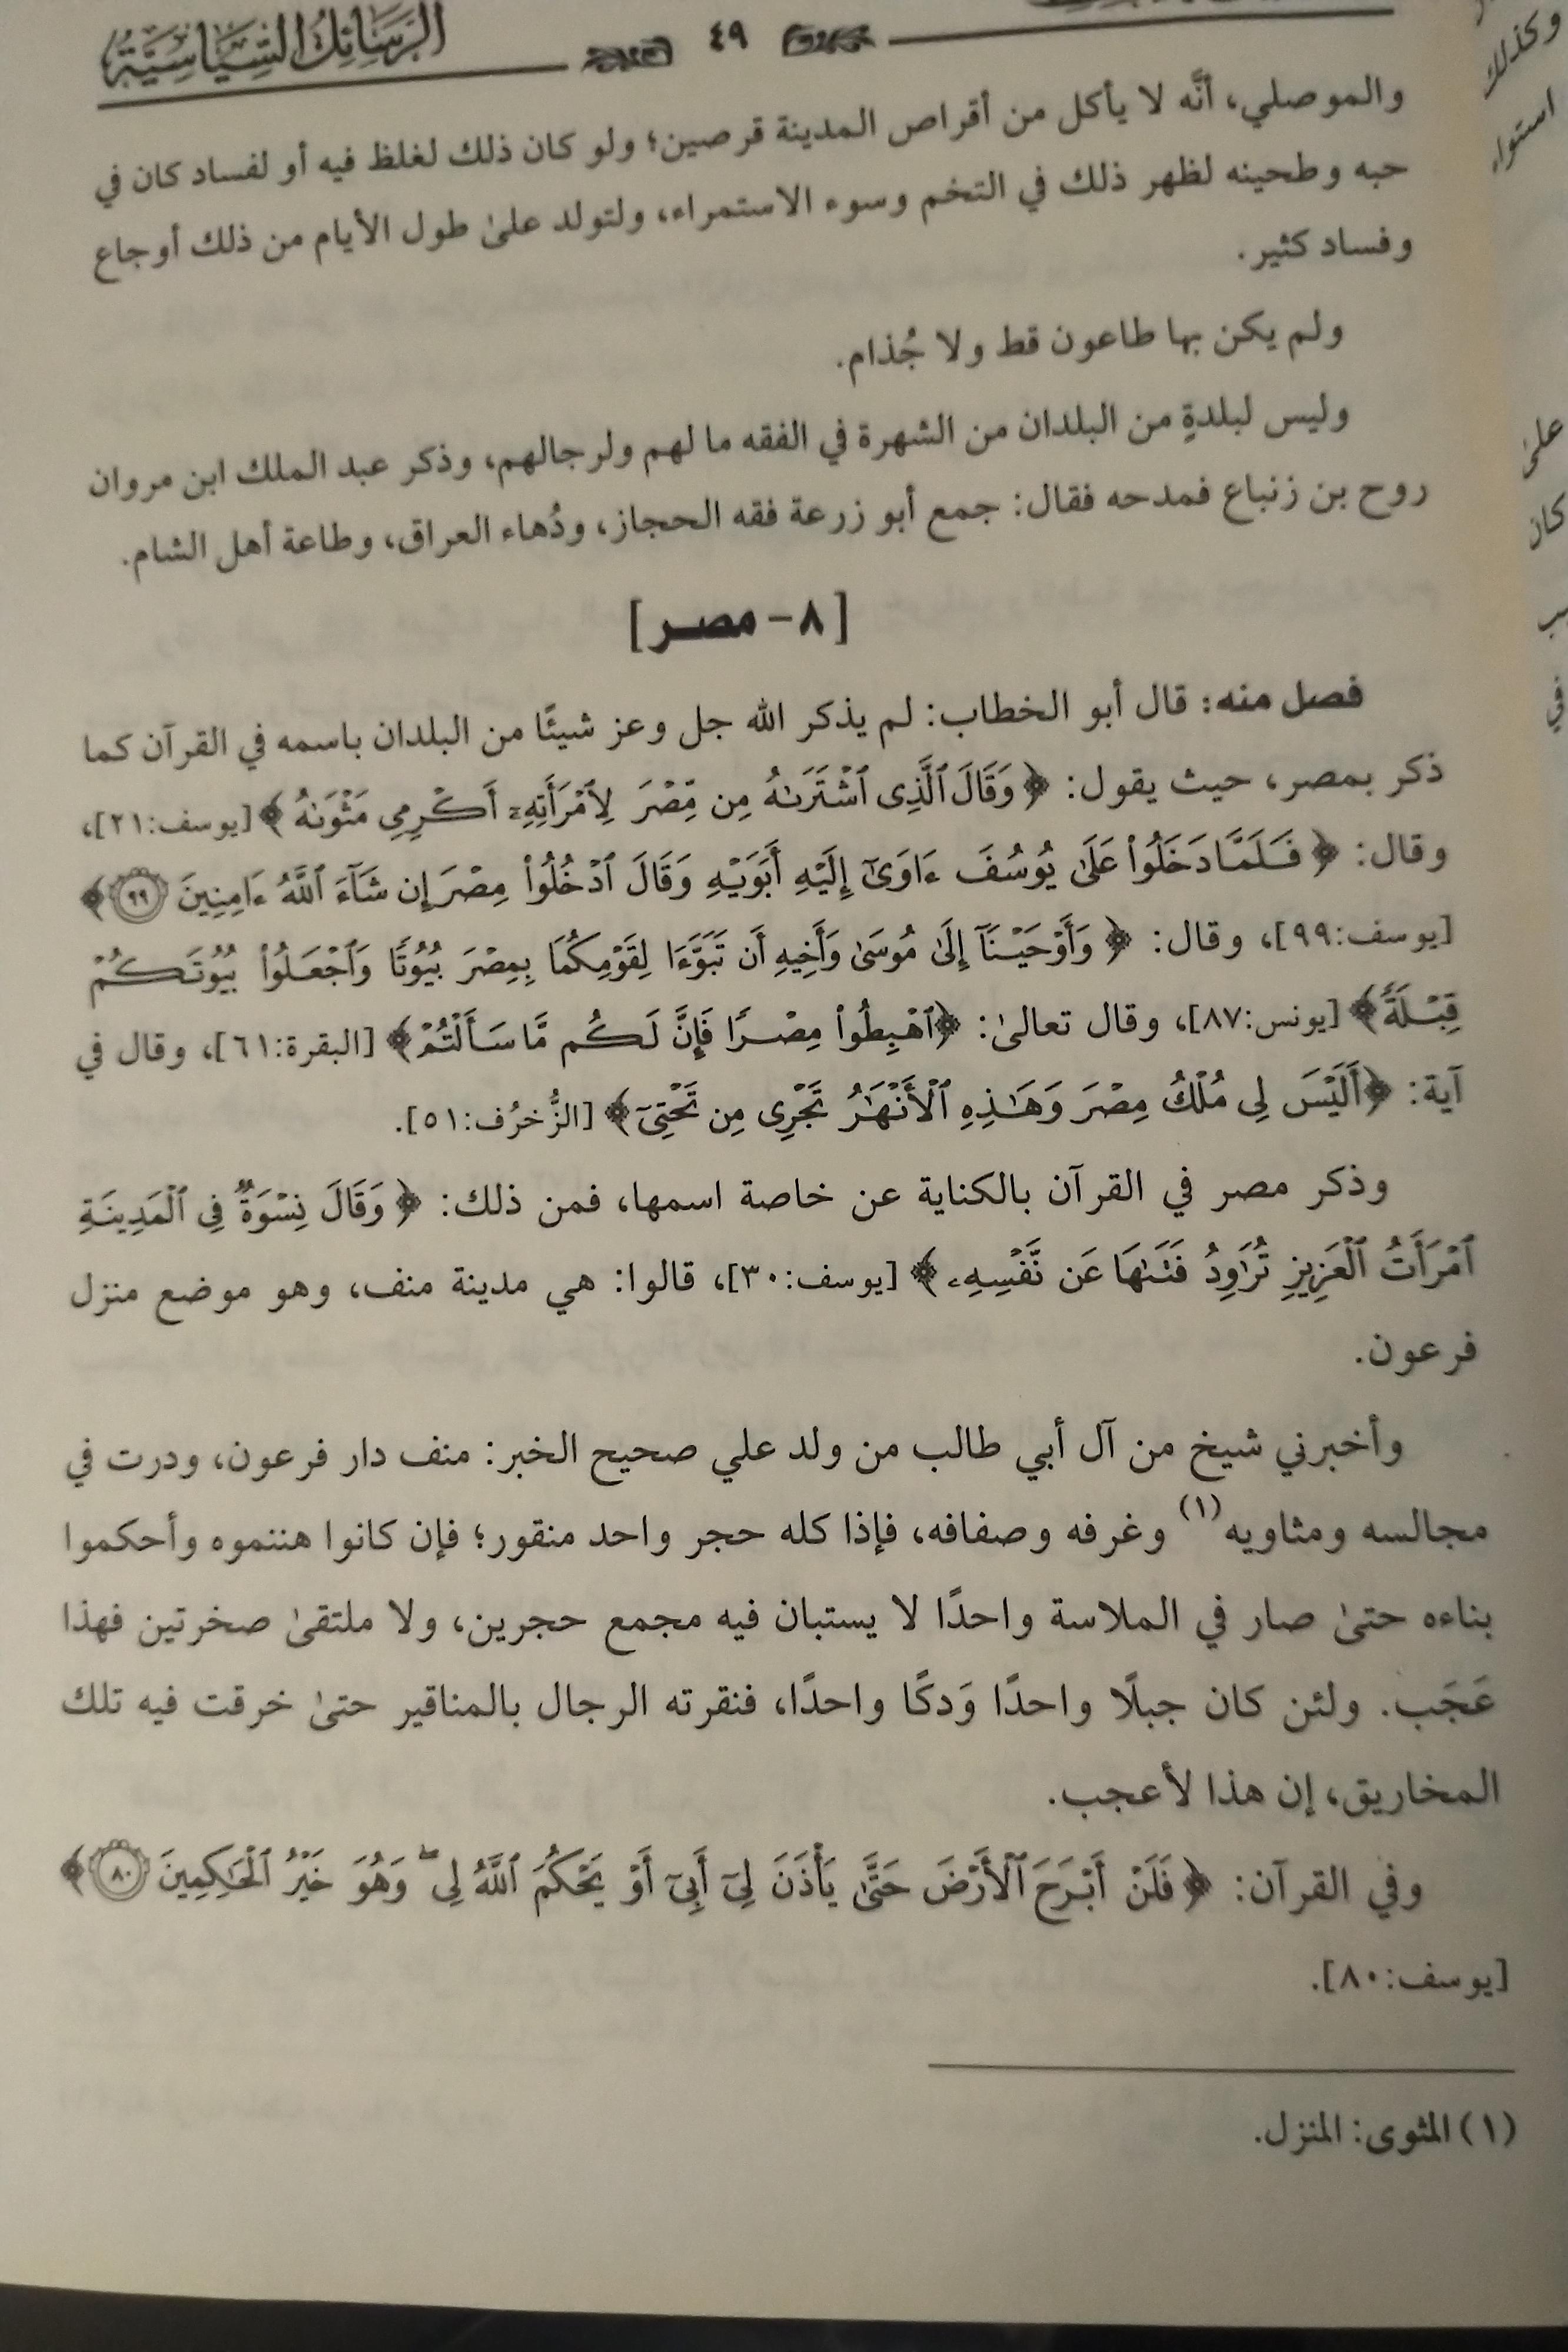 الرسائل السياسية
٤٩
والموصلي، أنَّه لا يأكل من أقراص المدينة قرصين؛ ولو كان ذلك لغلظ فيه أو لفساد كان في
حبه وطحينه لظهر ذلك في التخم وسوء الاستمراء، ولتولد علىٰ طول الأيام من ذلك أوجاع
وفساد كثير.
ولم يكن بها طاعون قط ولا جُذام.
وليس لبلدةٍ من البلدان من الشهرة في الفقه ما لهم ولرجالهم، وذكر عبد الملك ابن مروان
روح بن زنباع فمدحه فقال: جمع أبو زرعة فقه الحجاز، ودُهاء العراق، وطاعة أهل الشام.
[٨- مصر]
فصل منه: قال أبو الخطاب: لم يذكر الله جل وعز شيئًا من البلدان باسمه في القرآن كما
ذكر بمصر، حيث يقول: ﴿وَقَالَ ٱلَّذِى ٱشْتَرَىٰهُ مِن مِّصْرَ لِٱمْرَأَتِهِۦٓ أَكْرِمِى مَثْوَىٰهُ﴾ [يوسف:٢١]،
وقال: ﴿فَلَمَّا دَخَلُوا۟ عَلَىٰ يُوسُفَ ءَاوَىٰٓ إِلَيْهِ أَبَوَيْهِ وَقَالَ ٱدْخُلُوا۟ مِصْرَ إِن شَآءَ ٱللَّهُ ءَامِنِينَ ٩٩﴾
[يوسف:٩٩]، وقال: ﴿وَأَوْحَيْنَآ إِلَىٰ مُوسَىٰ وَأَخِيهِ أَن تَبَوَّءَا لِقَوْمِكُمَا بِمِصْرَ بُيُوتًا وَٱجْعَلُوا۟ بُيُوتَكُمْ
قِبْلَةً﴾ [يونس:٨٧]، وقال تعالىٰ: ﴿ٱهْبِطُوا۟ مِصْرًا فَإِنَّ لَكُم مَّا سَأَلْتُمْ﴾ [البقرة:٦١]، وقال في
آية: ﴿أَلَيْسَ لِى مُلْكُ مِصْرَ وَهَـٰذِهِ ٱلْأَنْهَـٰرُ تَجْرِى مِن تَحْتِىٓ﴾ [الزُّخرُف:٥١].
وذكر مصر في القرآن بالكناية عن خاصة اسمها، فمن ذلك: ﴿وَقَالَ نِسْوَةٌ فِى ٱلْمَدِينَةِ
ٱمْرَأَتُ ٱلْعَزِيزِ تُرَٰوِدُ فَتَىٰهَا عَن نَّفْسِهِۦ﴾ [يوسف:٣٠]، قالوا: هي مدينة منف، وهو موضع منزل
فرعون.
وأخبرني شيخ من آل أبي طالب من ولد علي صحيح الخبر: منف دار فرعون، ودرت في
مجالسه ومثاويه(١) وغرفه وصفافه، فإذا كله حجر واحد منقور؛ فإن كانوا هندموه وأحكموا
بناءه حتىٰ صار في الملاسة واحدًا لا يستبان فيه مجمع حجرين، ولا ملتقىٰ صخرتين فهذا
عَجَب. ولئن كان جبلًا واحدًا وَدكًا واحدًا، فنقرته الرجال بالمناقير حتىٰ خرقت فيه تلك
المخاريق، إن هذا لأعجب.
وفي القرآن: ﴿فَلَنْ أَبْرَحَ ٱلْأَرْضَ حَتَّىٰ يَأْذَنَ لِىٓ أَبِىٓ أَوْ يَحْكُمَ ٱللَّهُ لِى ۖ وَهُوَ خَيْرُ ٱلْحَـٰكِمِينَ ٨٠﴾
[يوسف:٨٠].
(١) المثوى: المنزل.
وكذلك
استواء
علىٰ
كان
في